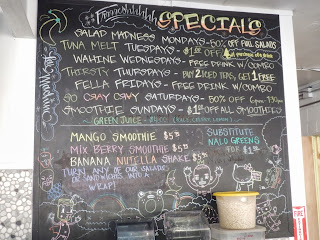 SPECIALS
SALAD MADNESS MONDAYS - 50% OFF FULL SALADS
TUNA MELT TUESDAYS - $1.00 OFF
WAHINE WEDNESDAYS - FREE DRINK W/COMBO
THIRSTY THURSDAYS - BUY 2 ICED TEAS, GET 1 FREE
FELLA FRIDAYS - FREE DRINK W/COMBO
SO CRAY CRAY SATURDAYS - 50% OFF
SMOOTHIE SUNDAYS - $1.00 OFF ALL SMOOTHIES
GREEN JUICE
MANGO SMOOTHIE $5
MIX BERRY SMOOTHIE $5
BANANA NUTELLA SHAKE $5
SUBSTITUTE
NALO GREENS
FOR $1
TURN ANY OF OUR SALADS
OR SANDWICHES INTO A
WRAP!